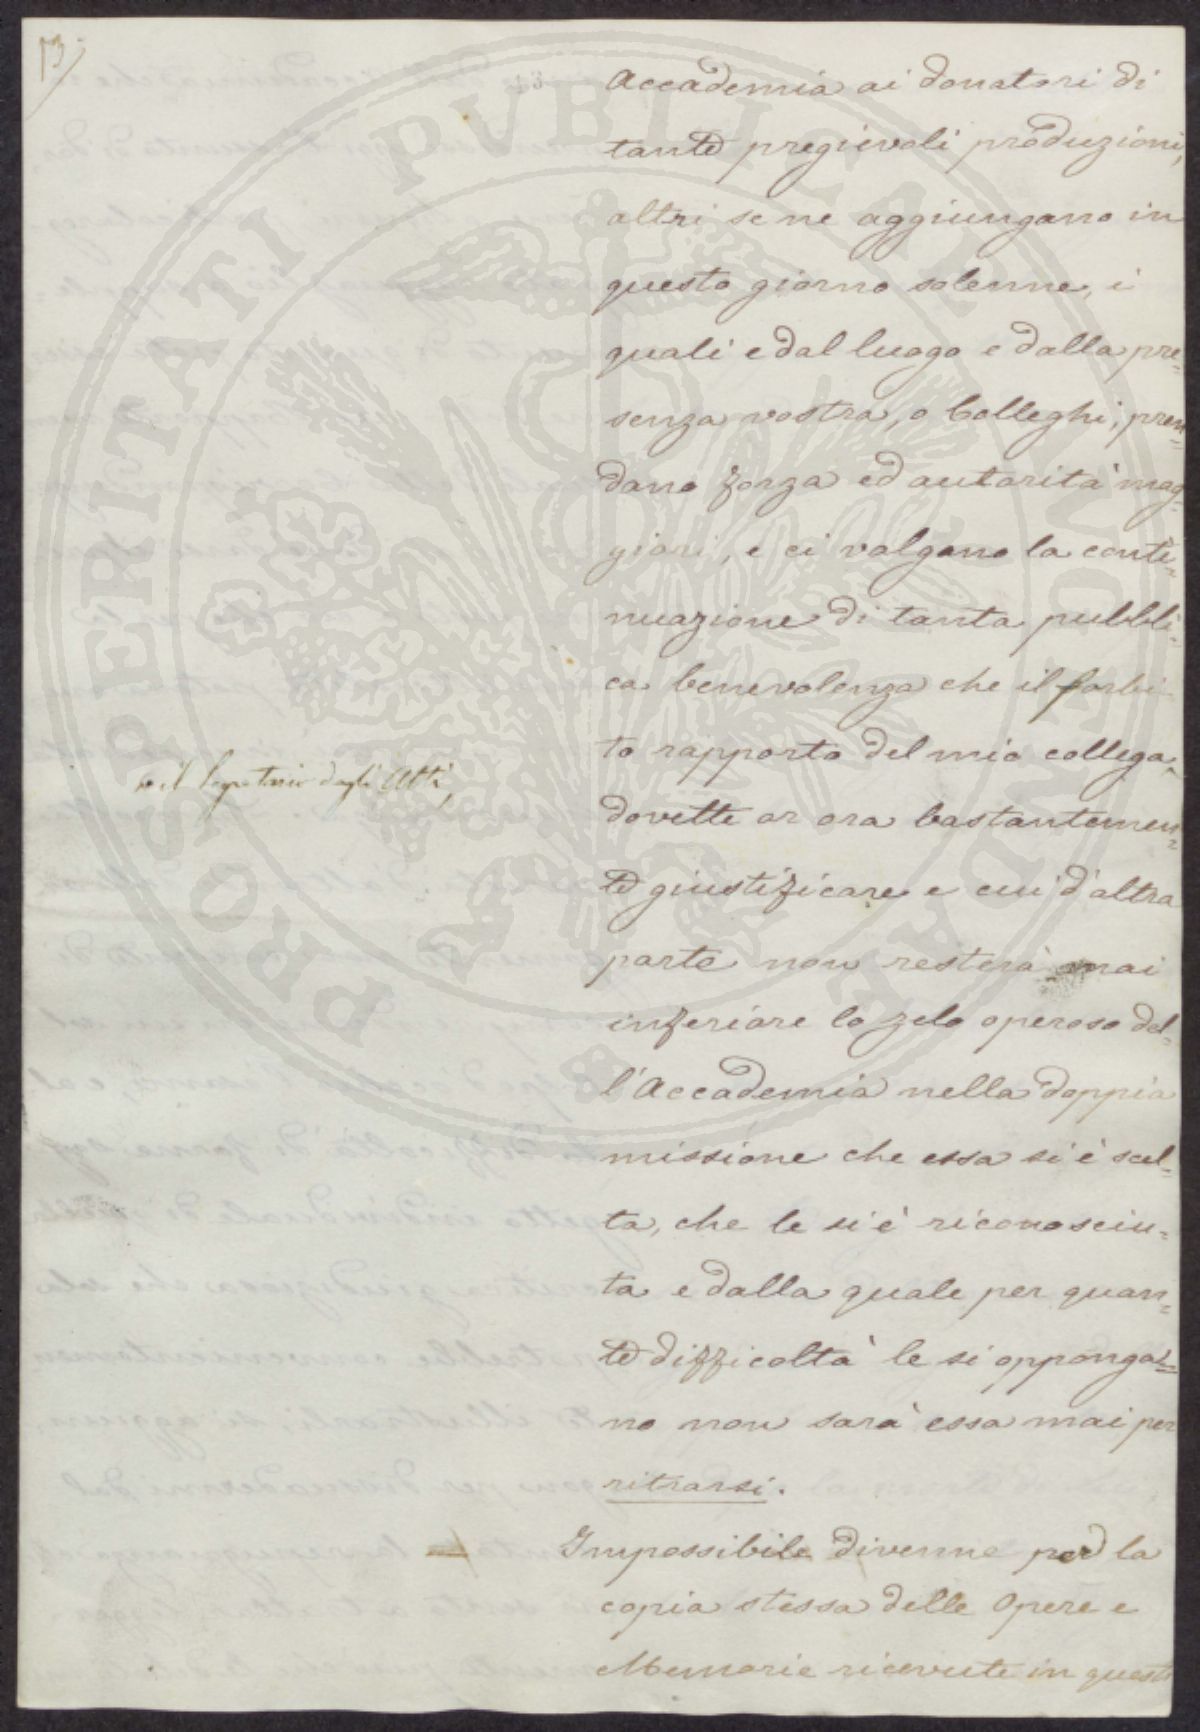 13
Accademia ai donatori di
tante pregievoli produzioni,
altri se ne aggiungano in
questo giorno solenne, i
quali e dal luogo e dalla pre=
senza vostra, o Colleghi, pren=
dano forza ed autorità mag=
giori, e ci valgano la conti=
nuazione di tanta pubbli=
ca benevolenza che il forbi
to rapporto del mio collega,
il Segretario degli Atti,
dovette or ora bastantemen=
te giustificare e cui d'altra
parte non resterà mai
inferiore lo zelo operoso del=
l'Accademia nella doppia
missione che essa si è scel=
ta, che le si è riconosciu=
ta e dalla quale per quan=
te difficoltà le si opponga=
no non sarà essa mai per
ritrarsi.
Impossibile divenne per la
copia stessa delle Opere e
Memorie ricevute in questi
PROSPERITATI PUBLICAE AUGENDAE